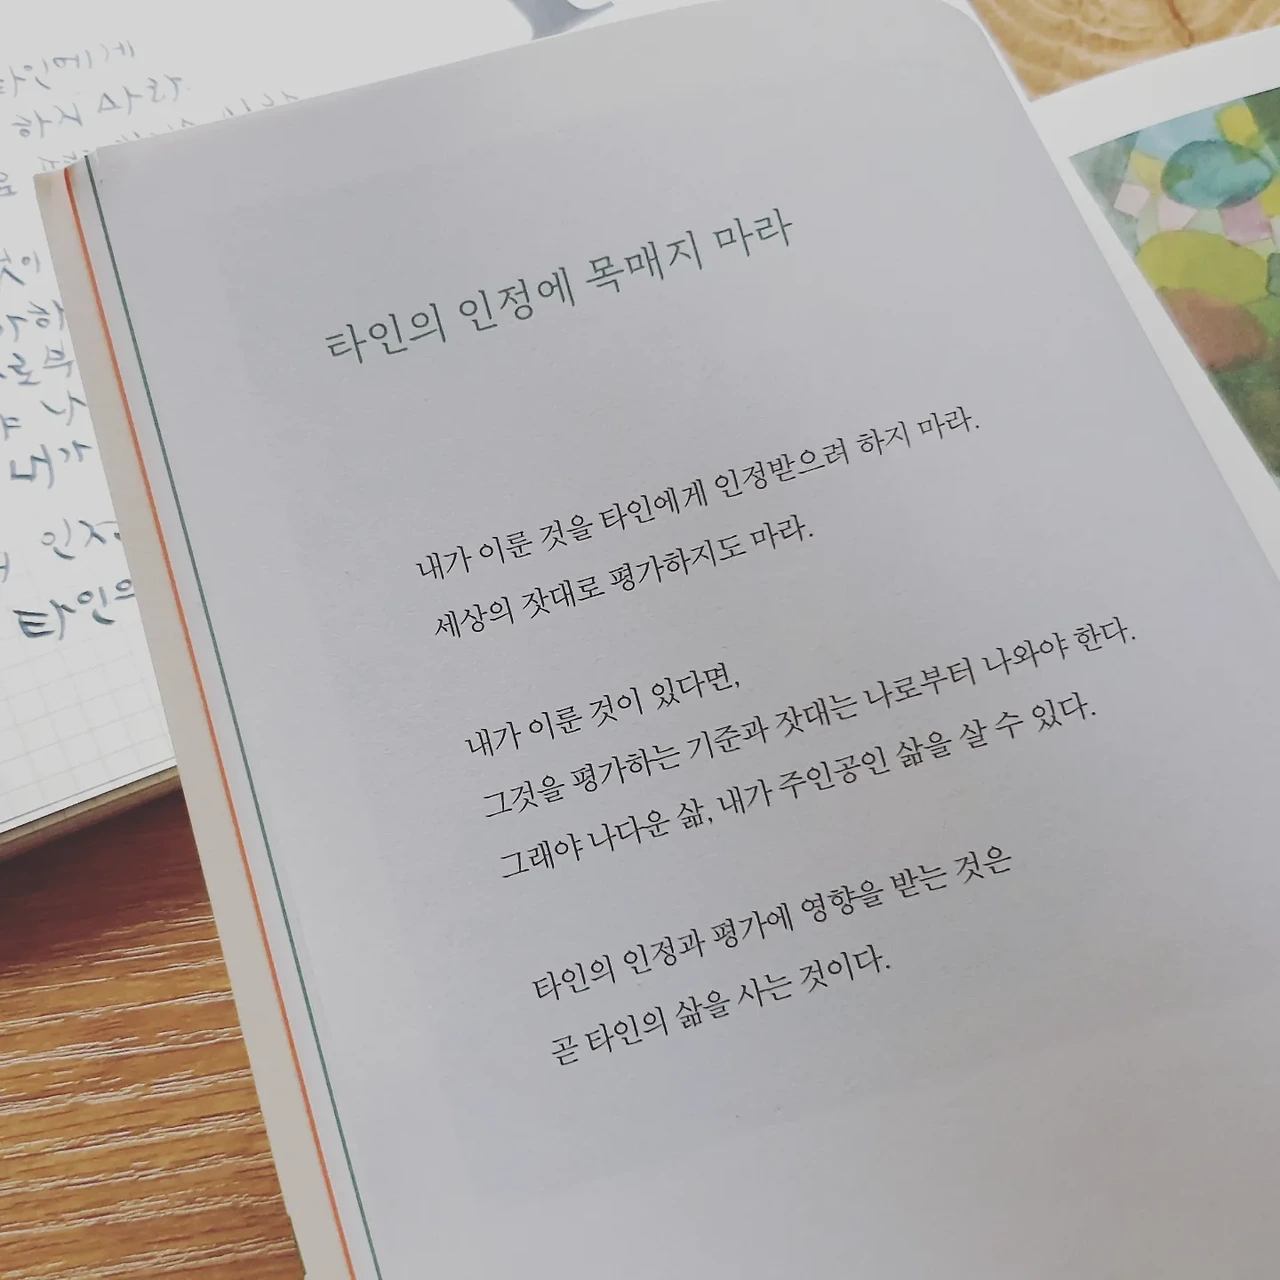 타인에게
하지 마라.
것이
로부
야 나
내가
타인의
타인의 인정에 목매지 마라
내가 이룬 것을 타인에게 인정받으려 하지 마라.
세상의 잣대로 평가하지도 마라.
내가 이룬 것이 있다면,
그것을 평가하는 기준과 잣대는 나로부터 나와야 한다.
그래야 나다운 삶, 내가 주인공인 삶을 살 수 있다.
타인의 인정과 평가에 영향을 받는 것은
곧 타인의 삶을 사는 것이다.